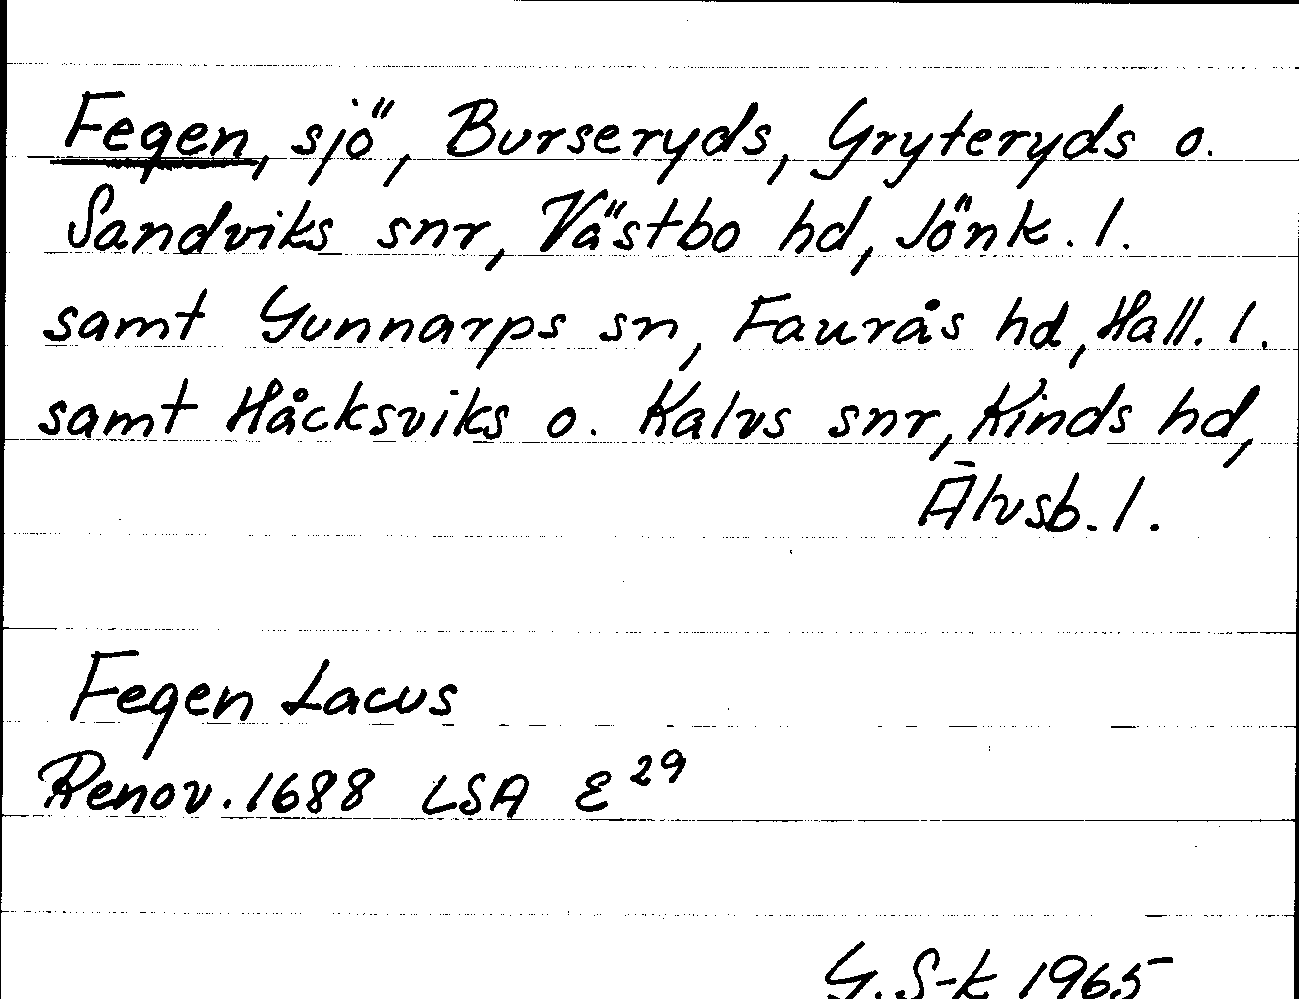 Fegen, sjö, Burseryds, Gryteryds o.
Sandviks snr, Västbo hd, Jönk. l.
samt Gunnarps sn, Faurås hd, Hall. l.
samt Håcksviks o. Kalvs snr, Kinds hd,
Älvsb. l.
Fegen Lacus
Renov. 1688 LSA E 29
G. S-k 1965